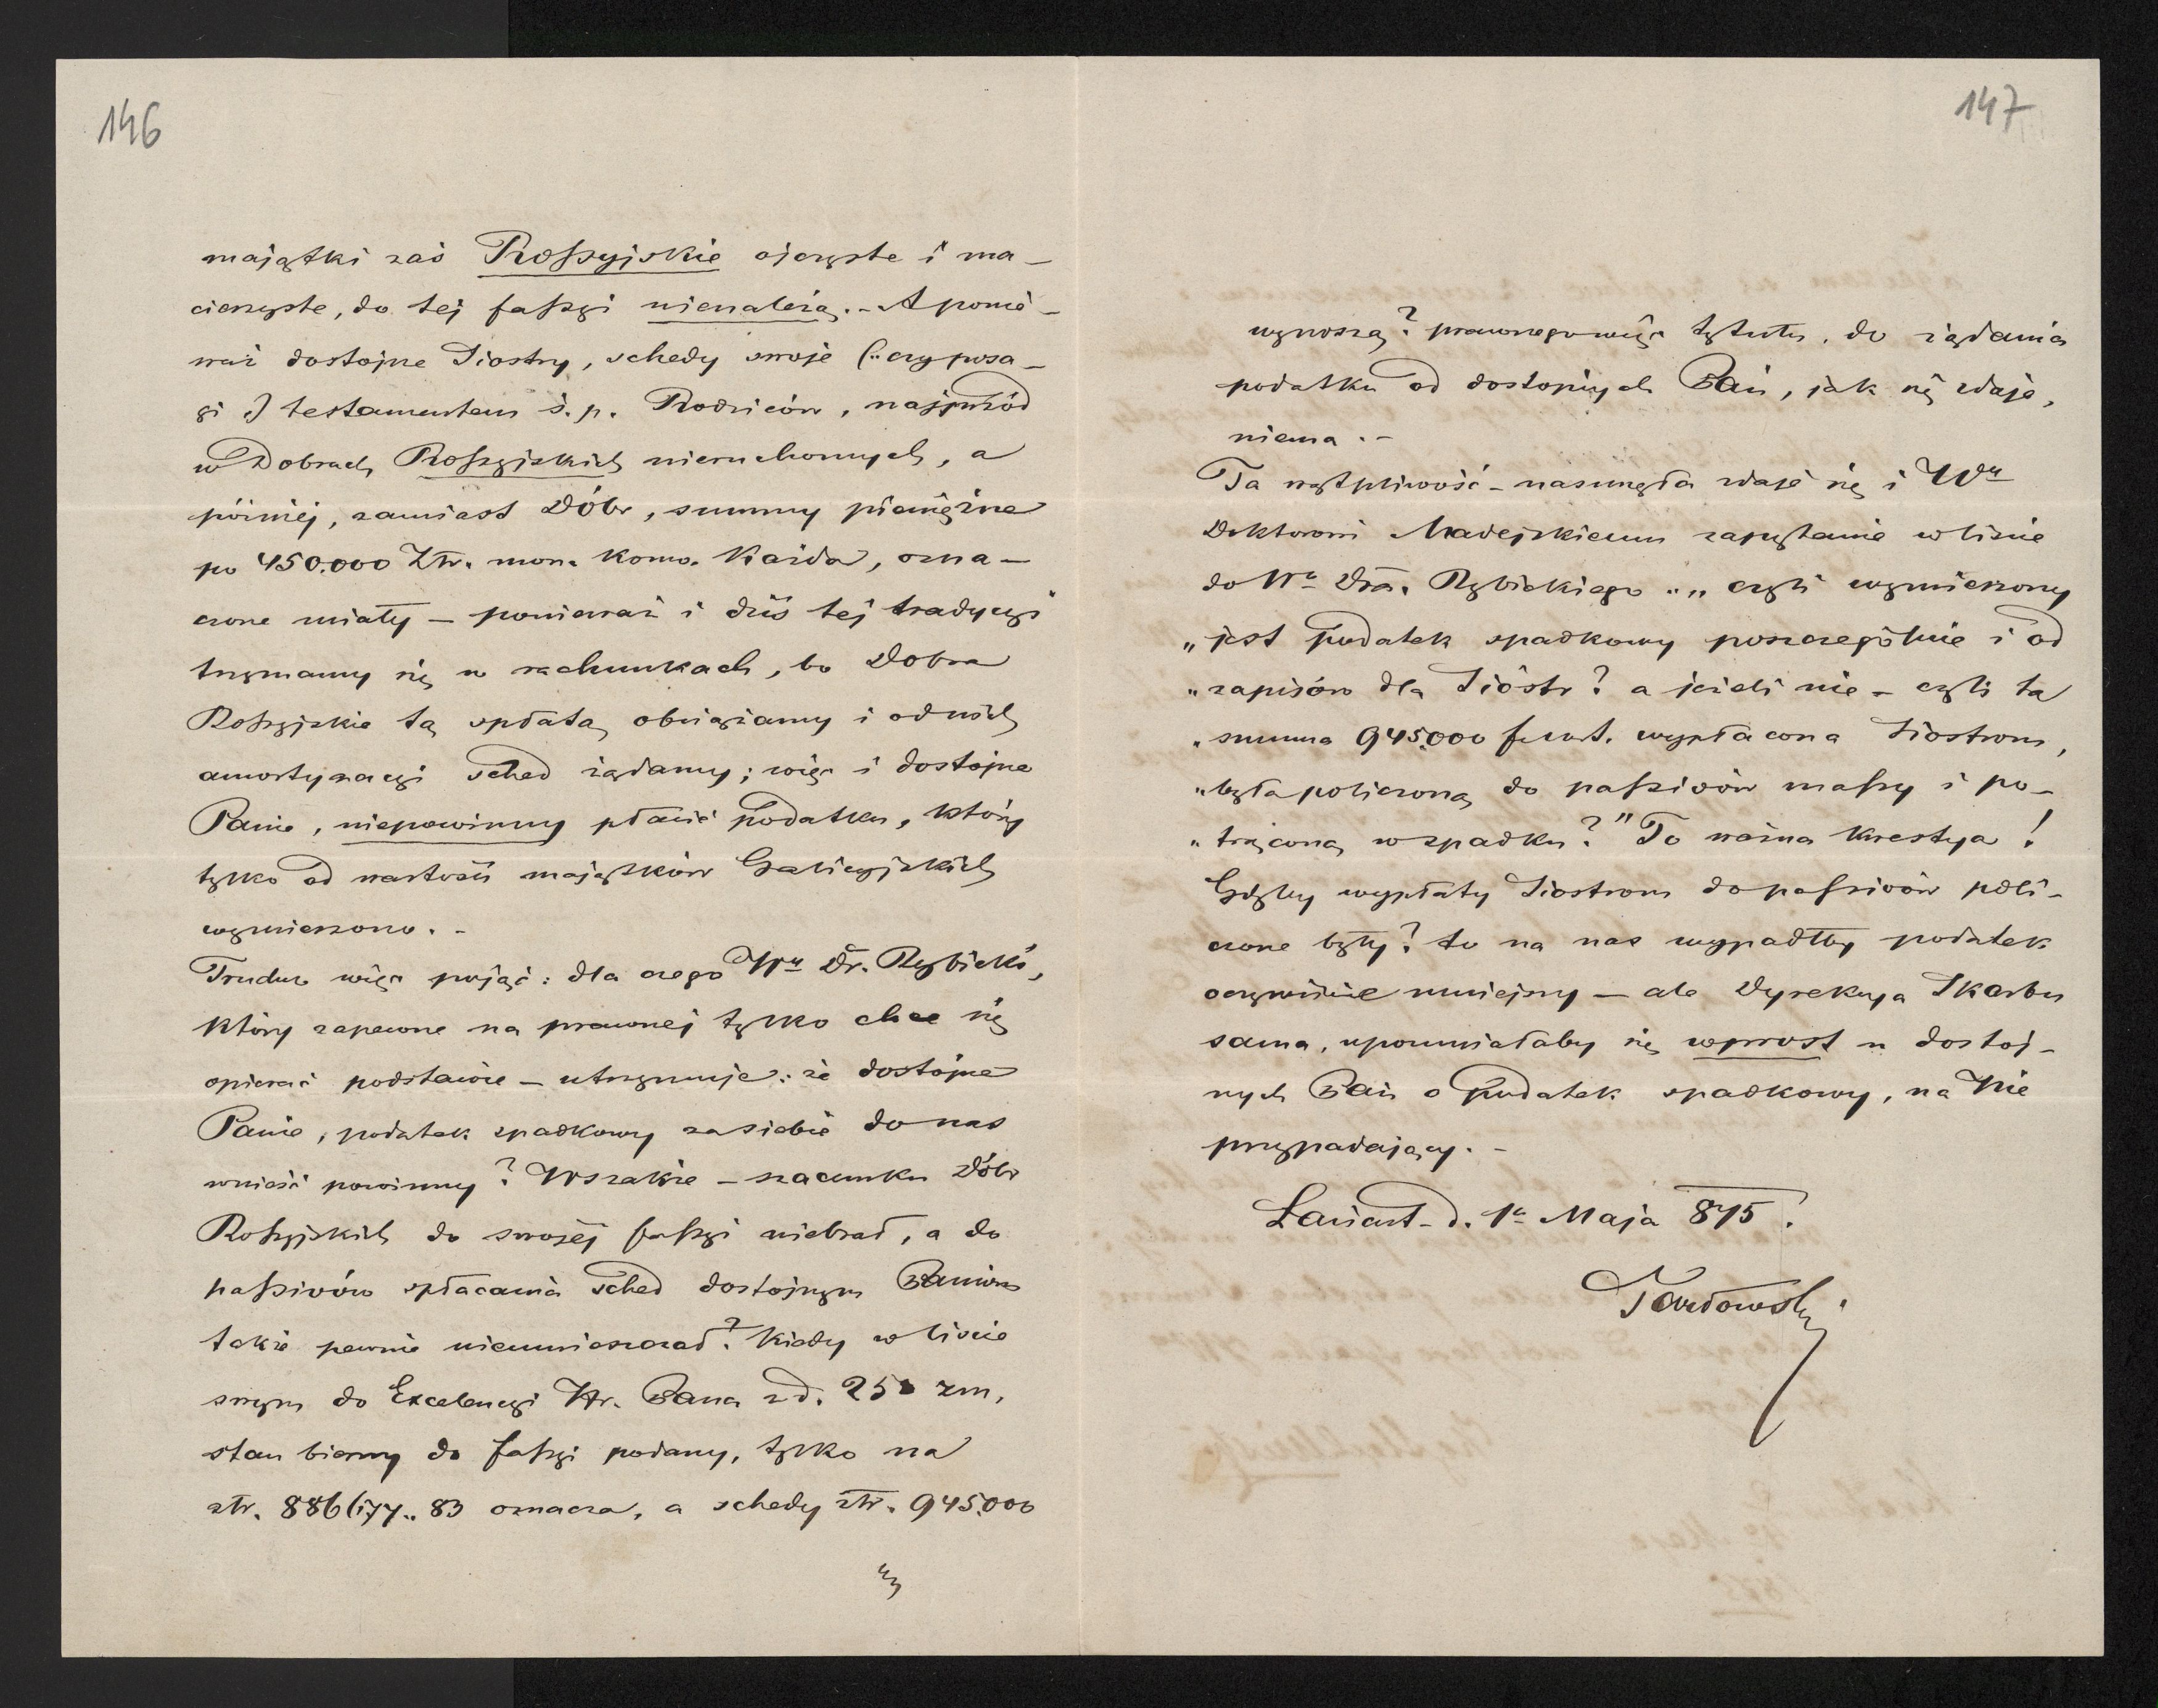 146
majątki zaś Rossyjskie ojczyste i ma-
cierzyste, do tej fassyi nienależą. - A ponie-
waż dostojne Siostry, schedy swoje (: czy posa-
gi :) testamentem ś. p. Rodziców, najprzód
w Dobrach Rossyjskich nieruchomych, a
później, zamiast Dóbr, summy pieniężne
po 450.000 Złr. mon. konw. Każda, ozna-
czone miały - ponieważ i dziś tej tradycyi
trzymamy się w rachunkach, bo Dobra
Rossyjskie tą spłatą obciążamy i od nich
amortyzacyi sched żądamy; więc i dostojne
Panie, niepowinny płacić podatku, który
tylko od wartości majątków Galicyjskich
wymierzono. -
Trudno więc pojąć: dla czego Wny Dr. Rybicki,
który zapewne na prawnej tylko chce się
opierać podstawie - utrzymuje: że dostojne
Panie, podatek spadkowy za siebie do nas
wnieść powinny? Wszakże - szacunku Dóbr
Rossyjskich do swojej fassyi niebrał, a do
passivów spłacania sched dostojnym Paniom
także pewnie nieumieszczał? Kiedy w liście
swym do Excelencyi Hr. Pana z d. 25 zm,
stan bierny do fassyi podany, tylko na
złr. 886177.. 83 oznacza, a schedy złr. 945.000
wy
147
wynoszą? prawnego więc tytułu, do żądania
podatku od dostojnych Pań, jak się zdaje,
niema. -
Ta wątpliwość - nasunęła zdaje się i Wmu
Doktorowi Madejskiemu zapytanie w liście
do Wgo Dra. Rybickiego „„ czyli wymierzony
„ jest podatek spadkowy poszczególnie i od
„ zapisów dla Sióstr? a jeżeli nie - czyli ta
„ summa 945.000 fl wypłacona Siostrom,
„ była policzoną do passivów massy i po-
„ trąconą w spadku?" To ważna kwestya!
Gdyby wypłaty Siostrom do passivów poli-
czone były? to na nas wypadłby podatek
oczywiście mniejszy - ale Dyrekcya Skarbu
sama, upomniałaby się wprost u dostoj-
nych Pań o podatek spadkowy, na Nie
przypadający. -
Łańcut - d. 1go Maja 875.